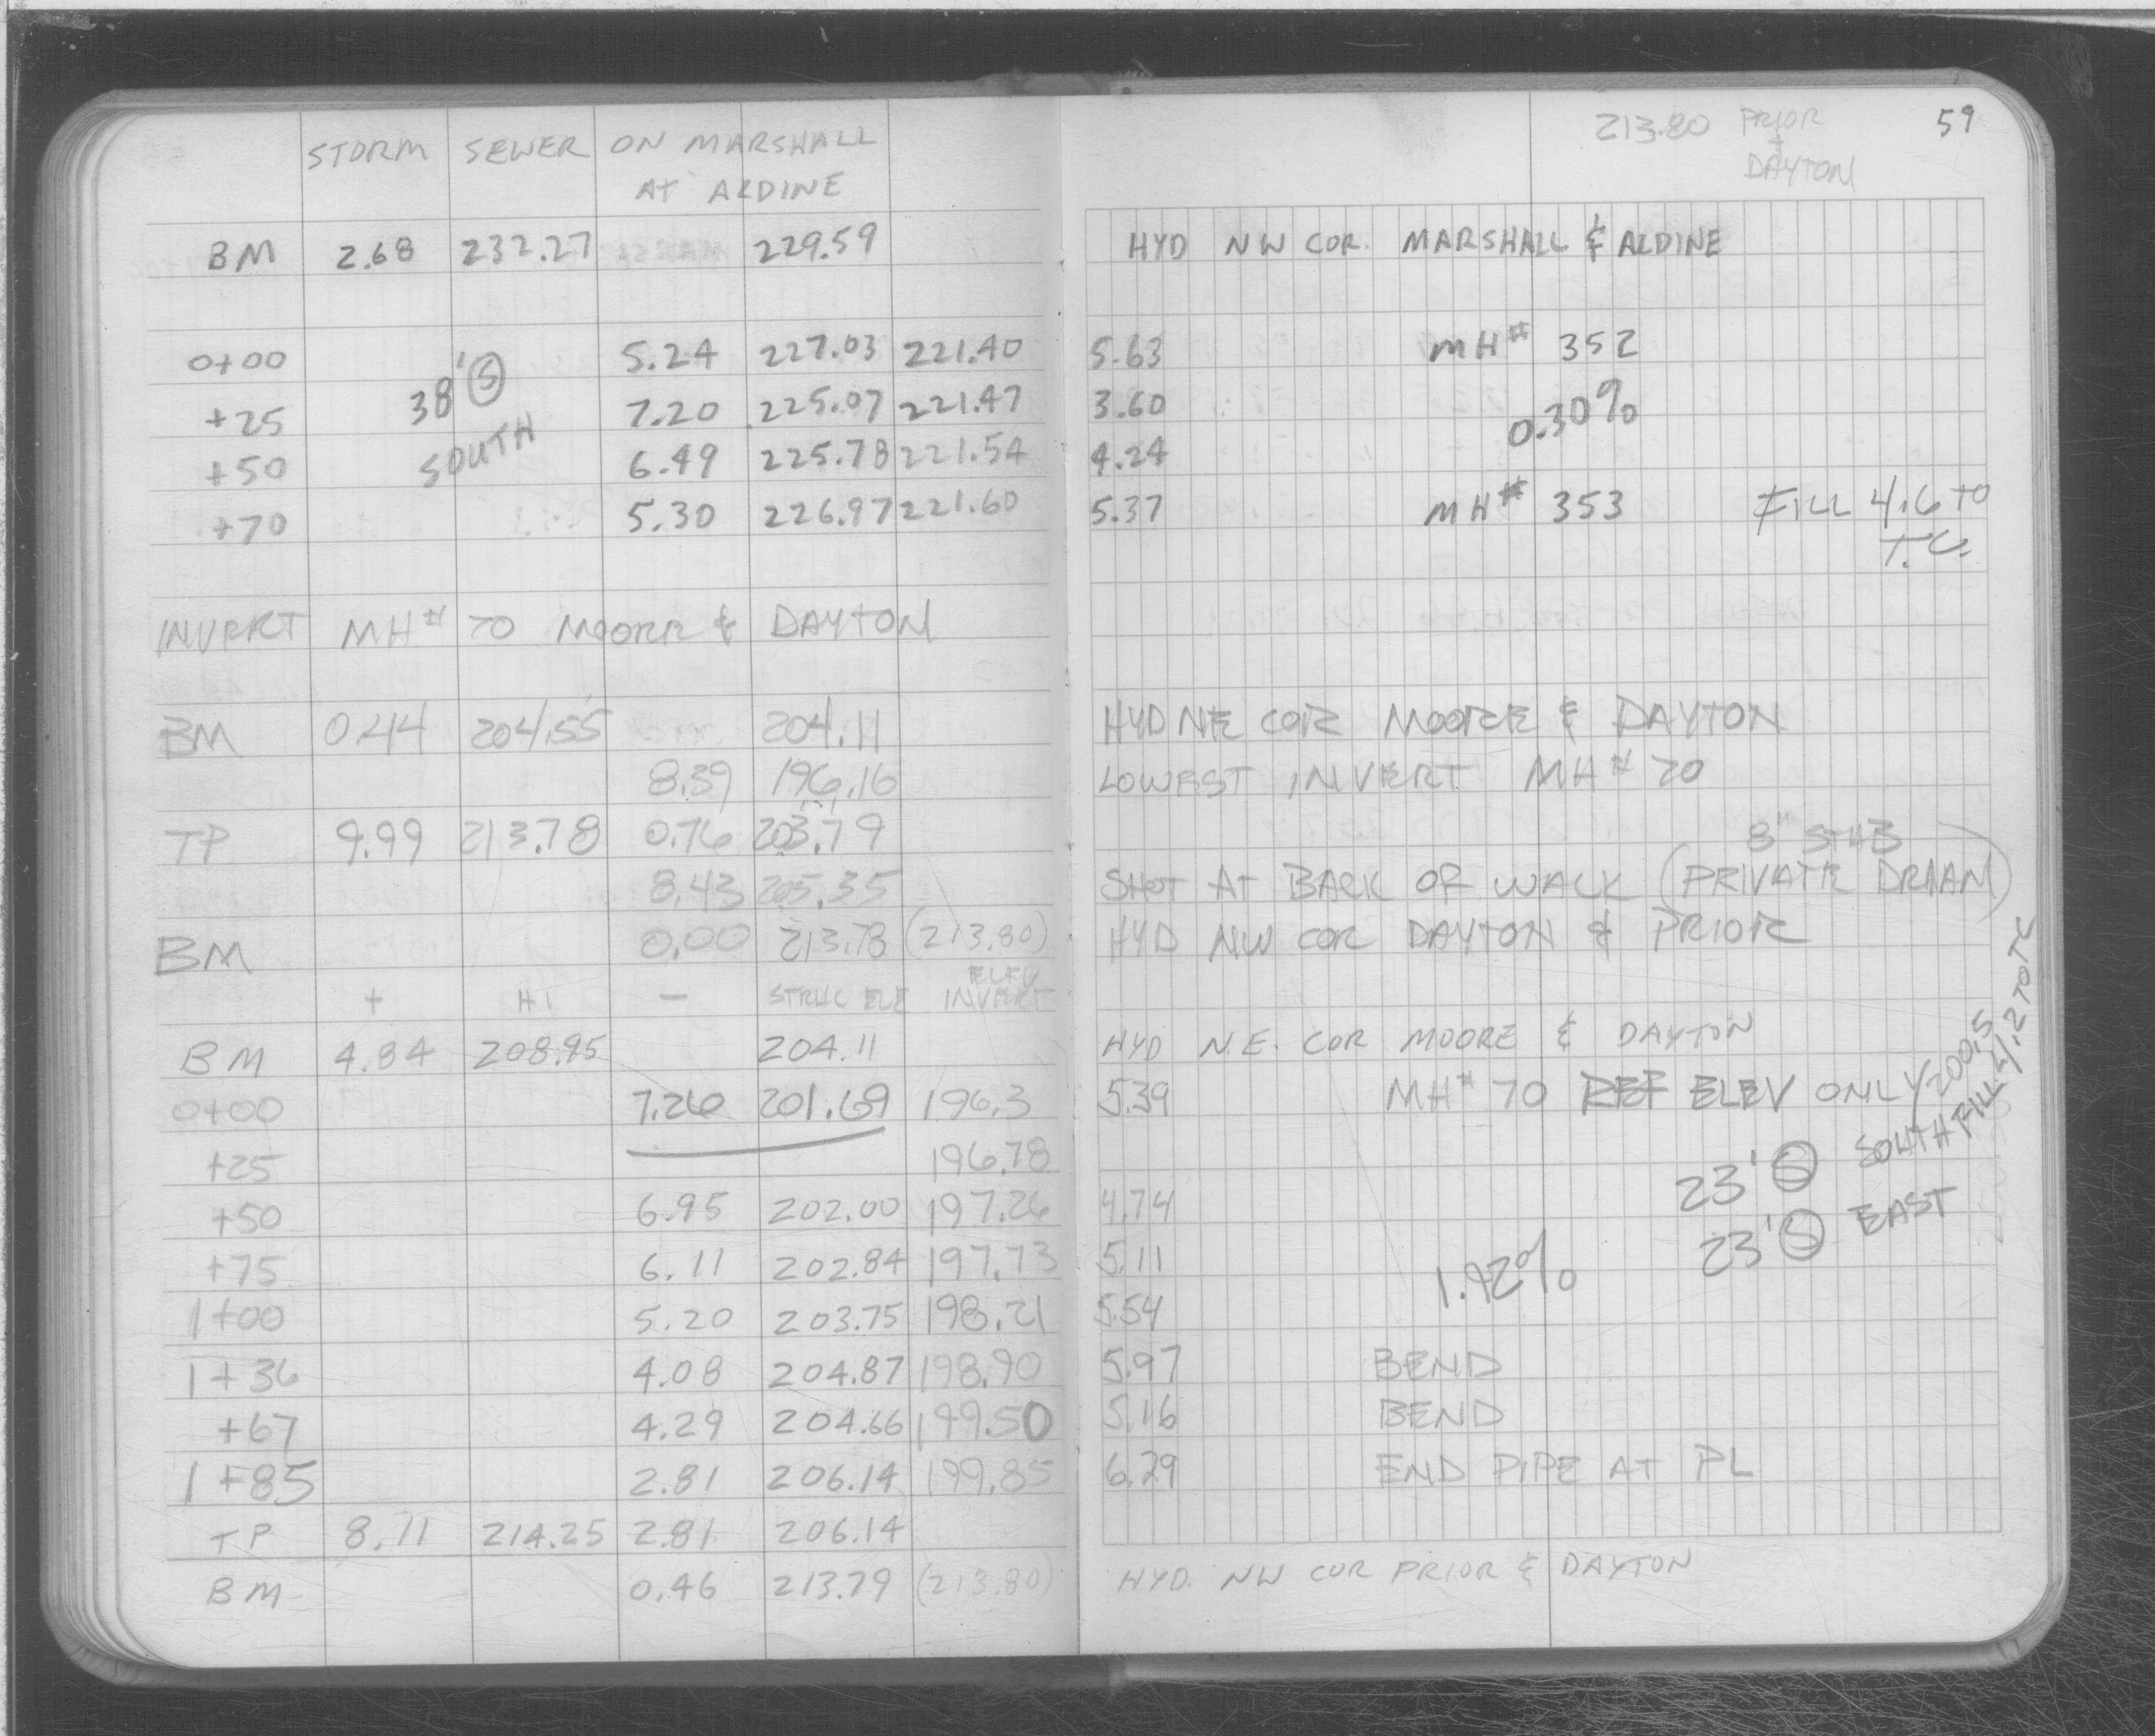 STORM SEWER ON MARSHALL
AT ALDINE
BM 2.68 232.27 229.59
0+00 5.24 227.03 221.40
38' Ⓢ
SOUTH
+25 7.20 225.07 221.47
+50 6.49 225.78 221.54
+70 5.30 226.97 221.60
INVERT MH# 70 MOORE & DAYTON
BM 0.44 204.55 204.11
8.39 196.16
TP 9.99 213.78 0.76 203.79
8.43 205.35
BM 0.00 213.78 (213.80)
+ HI - STRUC ELE ELEV INVERT
BM 4.84 208.95 204.11
0+00 7.26 201.69 196.3
+25 196.78
+50 6.95 202.00 197.26
+75 6.11 202.84 197.73
1+00 5.20 203.75 198.21
1+36 4.08 204.87 198.90
+67 4.29 204.66 199.50
1+85 2.81 206.14 199.85
TP 8.11 214.25 2.81 206.14
BM 0.46 213.79 (213.80)
213.80 PRIOR & DAYTON
59
HYD NW COR. MARSHALL & ALDINE
5.63 MH# 352
3.60 0.30%
4.24
5.37 MH# 353 FILL 4.6 TO
T.C.
HYD NE COR MOORE & DAYTON
LOWEST INVERT MH# 70
8" STUB
SHOT AT BACK OF WALK (PRIVATE DRAIN)
HYD NW COR DAYTON & PRIOR
HYD N.E. COR MOORE & DAYTON
5.39 MH# 70 REF ELEV ONLY 200.5
23' Ⓢ SOUTH FILL 4.2 TO TC
4.74
23' Ⓢ EAST
5.11 1.92%
5.54
5.97 BEND
5.16 BEND
6.29 END PIPE AT PL
HYD. NW COR PRIOR & DAYTON